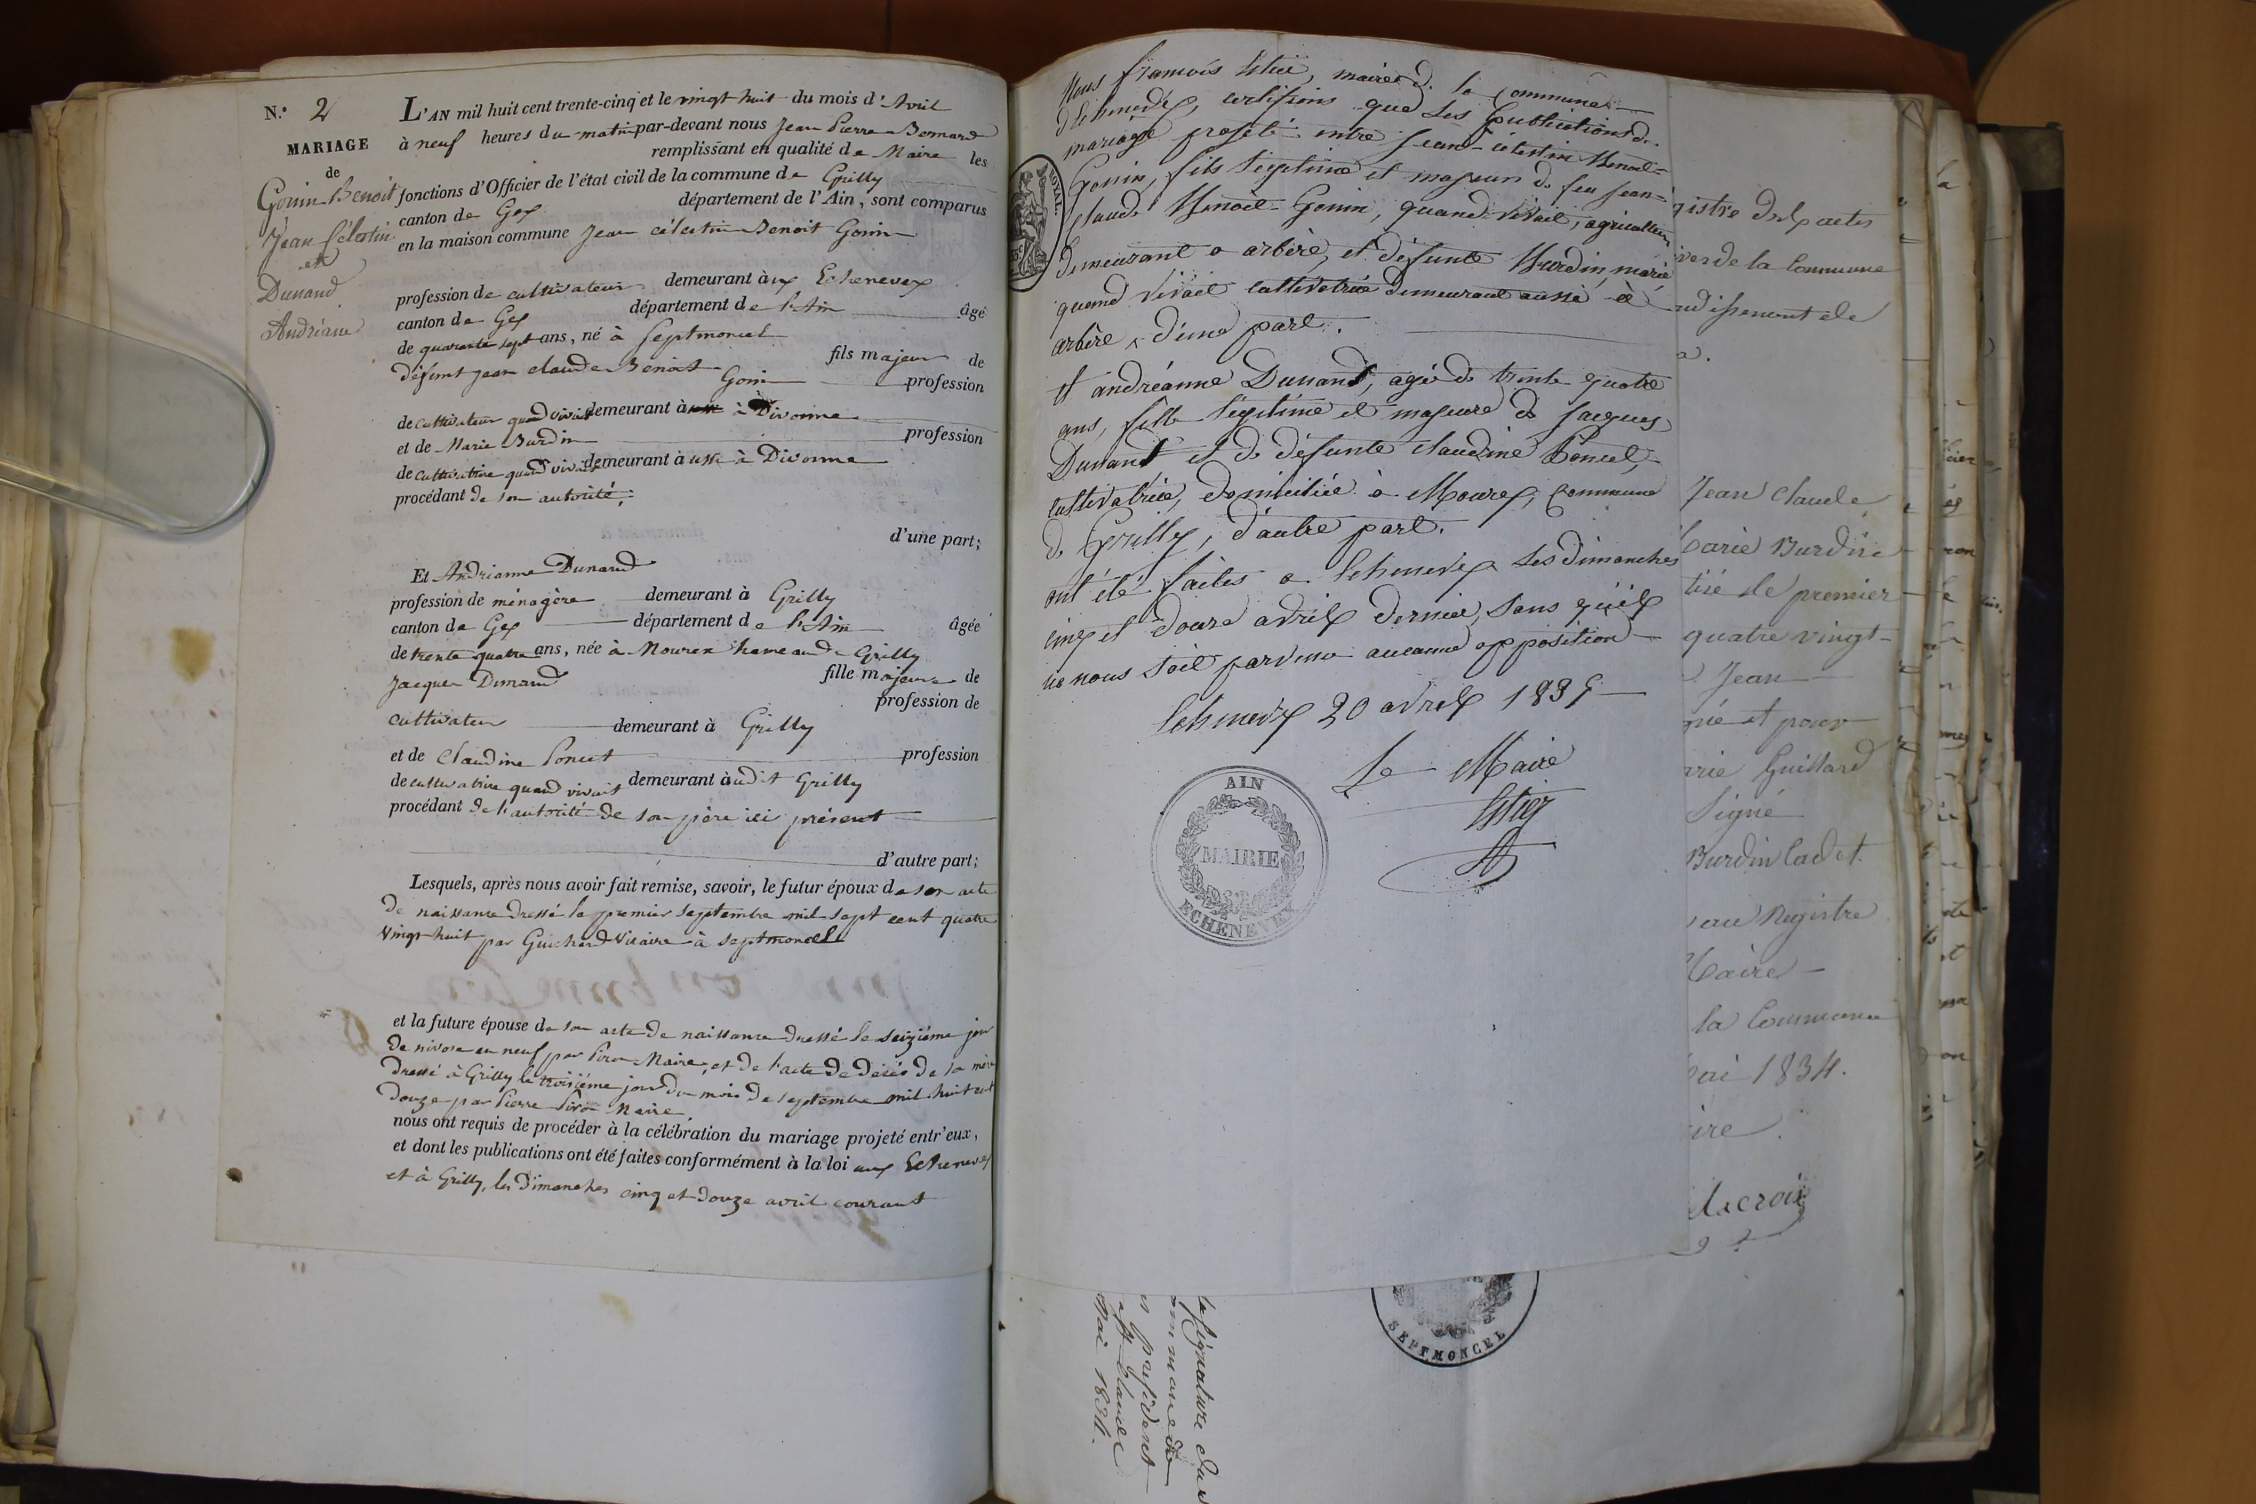 N.° 2
MARIAGE
de
Gonin-Benoit
Jean Célestin
et
Dunand
Andrianne
L'AN mil huit cent trente-cinq et le vingt huit du mois d'Avril
à neuf heures du matin par-devant nous Jean Pierre Bernard
remplissant en qualité de Maire les
fonctions d'Officier de l'état civil de la commune de Grilly
canton de Gex département de l'Ain, sont comparus
en la maison commune Jean célestin Benoit Gonin
profession de cultivateur demeurant aux Echenevex
canton de Gex département de l'Ain âgé
de quarante sept ans, né à Septmoncel
fils majeur de
défunt Jean claude Benoit Gonin profession
de cultivateur quand vivait demeurant à Divonne
et de Marie Burdin profession
de cultivatrice quand vivait demeurant à Divonne
procédant de son autorité;
d'une part;
Et Andrianne Dunand
profession de ménagère demeurant à Grilly
canton de Gex département de l'Ain âgée
de trente quatre ans, née à Mourex hameau de Grilly
fille majeure de
Jacques Dunand profession de
cultivateur demeurant à Grilly
et de Claudine Poncet profession
de cultivatrice quand vivait demeurant audit Grilly
procédant de l'autorité de son père ici présent
d'autre part;
Lesquels, après nous avoir fait remise, savoir, le futur époux de son acte
de naissance dressé le premier septembre mil sept cent quatre
vingt-huit par Guichard Vicaire à septmoncel
et la future épouse de son acte de naissance dressé le seizième jour
de nivose an neuf par Maire, et de l'acte de décés de sa mère
dressé à Grilly le troisième jour du mois de septembre mil huit cent
douze par Pierre Maire
nous ont requis de procéder à la célébration du mariage projeté entr'eux,
et dont les publications ont été faites conformément à la loi aux Echenevex
et à Grilly, les Dimanches cinq et douze avril courant
Nous françois maire de la Commune
d'Echenevex, certifions que les publications de
mariage projeté entre Jean-célestin Benoit-
Gonin, fils légitime et majeur de feu Jean-
claude Benoit-Gonin, quand vivait, agriculteur
demeurant a arbère, et défunte Burdin, marie
quand vivait cultivatrice demeurant aussi à
arbère, d'une part.
Et andréanne Dunand, agée de trente quatre
ans, fille légitime et majeure de Jacques
Dunand et de défunte claudine Poncet,
cultivatrice, domiciliée à Mourex, Commune
de Grilly, d'autre part.
ont été faites a Echenevex les dimanches
cinq et douze avril dernier, sans qu'il
ne nous soit parvenu aucune opposition
Echenevex 20 avril 1835
Le Maire
AIN
MAIRIE
ECHENEVEX
ROYAL.
gistre des actes
de la Commune
Jean Claude
Marie Burdin
de premier
quatre vingt-
Jean
et pour
Signé
Burdin Cadet
au Registre
Maire
la Commune
Mai 1834.
Lacroix
la signature du
président
Mai 1834.
SEPTMONCEL